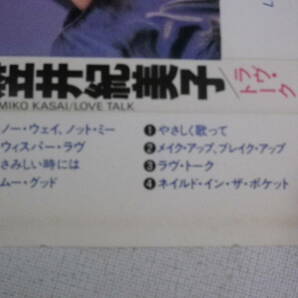 笠井紀美子/ラヴ・トーク
MIKO KASAI/LOVE TALK
ノー・ウェイ、ノット・ミー
ウィスパー・ラヴ
さみしい時には
ムー・グッド
❶やさしく歌って
❷メイク・アップ、ブレイク・アップ
❸ラヴ・トーク
❹ネイルド・イン・ザ・ポケット